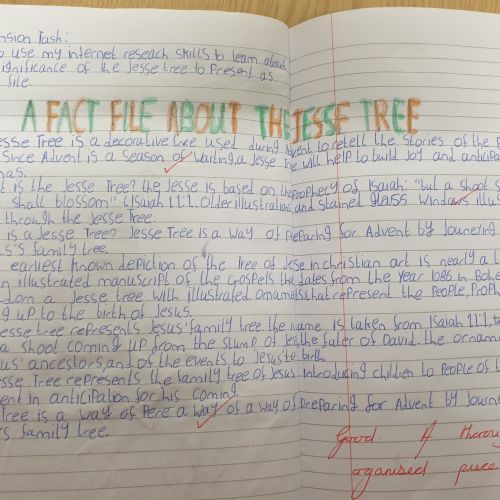 nsion Task:
o use my internet reseach skills to learn about
ignificance of the Jesse tree to Present as
file.
A FACT FILE ABOUT THE JESSE TREE
esse Tree is a decorative tree used during Advent to retell the stories of the
Since Advent is a season of waiting, a Jesse Tree will help to build Joy and anticipa
mas.
t is the Jesse Tree? the Jesse is based on the Prophecy of Isaiah: "but a shoot
shall blossom" (Isaiah 11:1. Older illustration and stained glass windows illus
through the Jesse Tree.
is a Jesse Tree? Jesse Tree is a way of Preparing for Advent by Journeying
s's family tree.
earliest known depiction of the Tree of Jesse in christian act is nearly a
n illustrated manuscript of the GosPels the dates from the year 1086 in Bohe
dorn a Jesse tree with illustrated ornamets that represent the People, ProPh
g up to the birth of Jesus.
esse tree represents Jesus' family tree. the name is taken from Isaiah 11:1,
a shoot coming up from the stump of Jesse, the fater of David. the orname
us' ancestors, and of the events to Jesus' birth.
sse Tree represents the family tree of Jesus introducing children to PeoPle of
ent in anticipation for his coming.
Tree is a way of Pere a way of a way of Preparing for Advent by Journe
s family tree.
Good. A thorou
organised piece